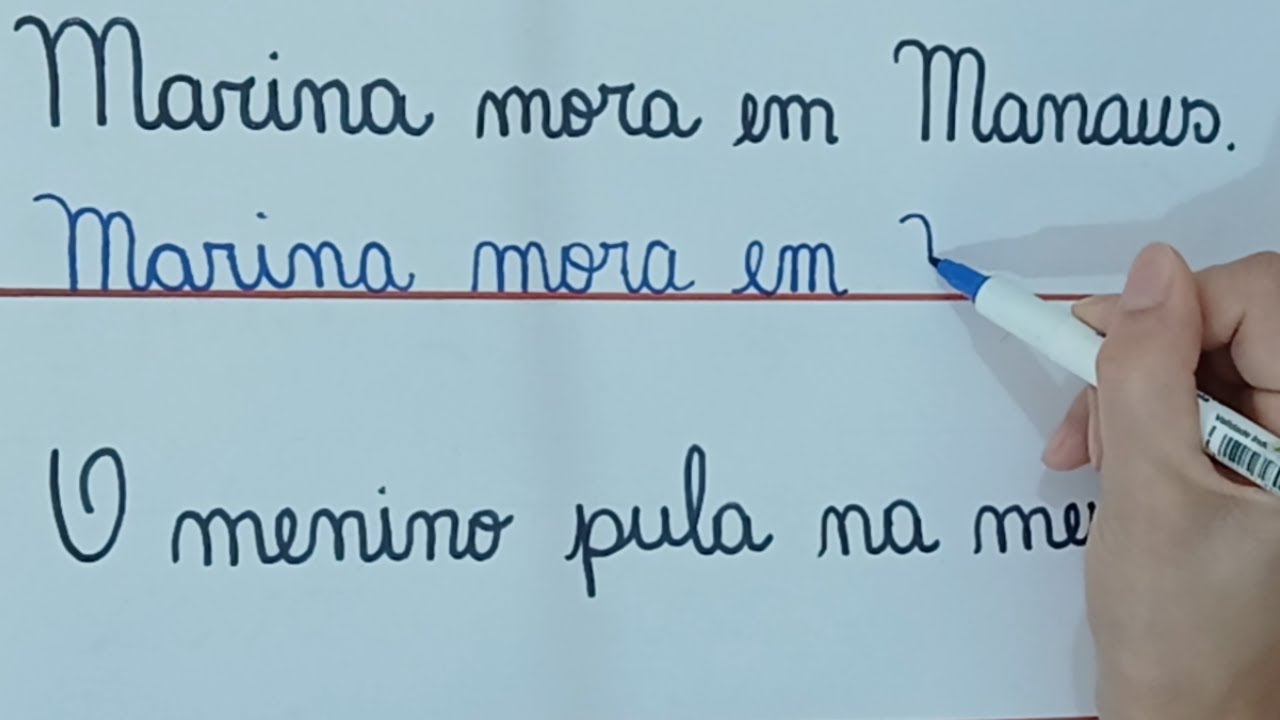 Marina mora em Manaus.
Marina mora em
O menino pula na